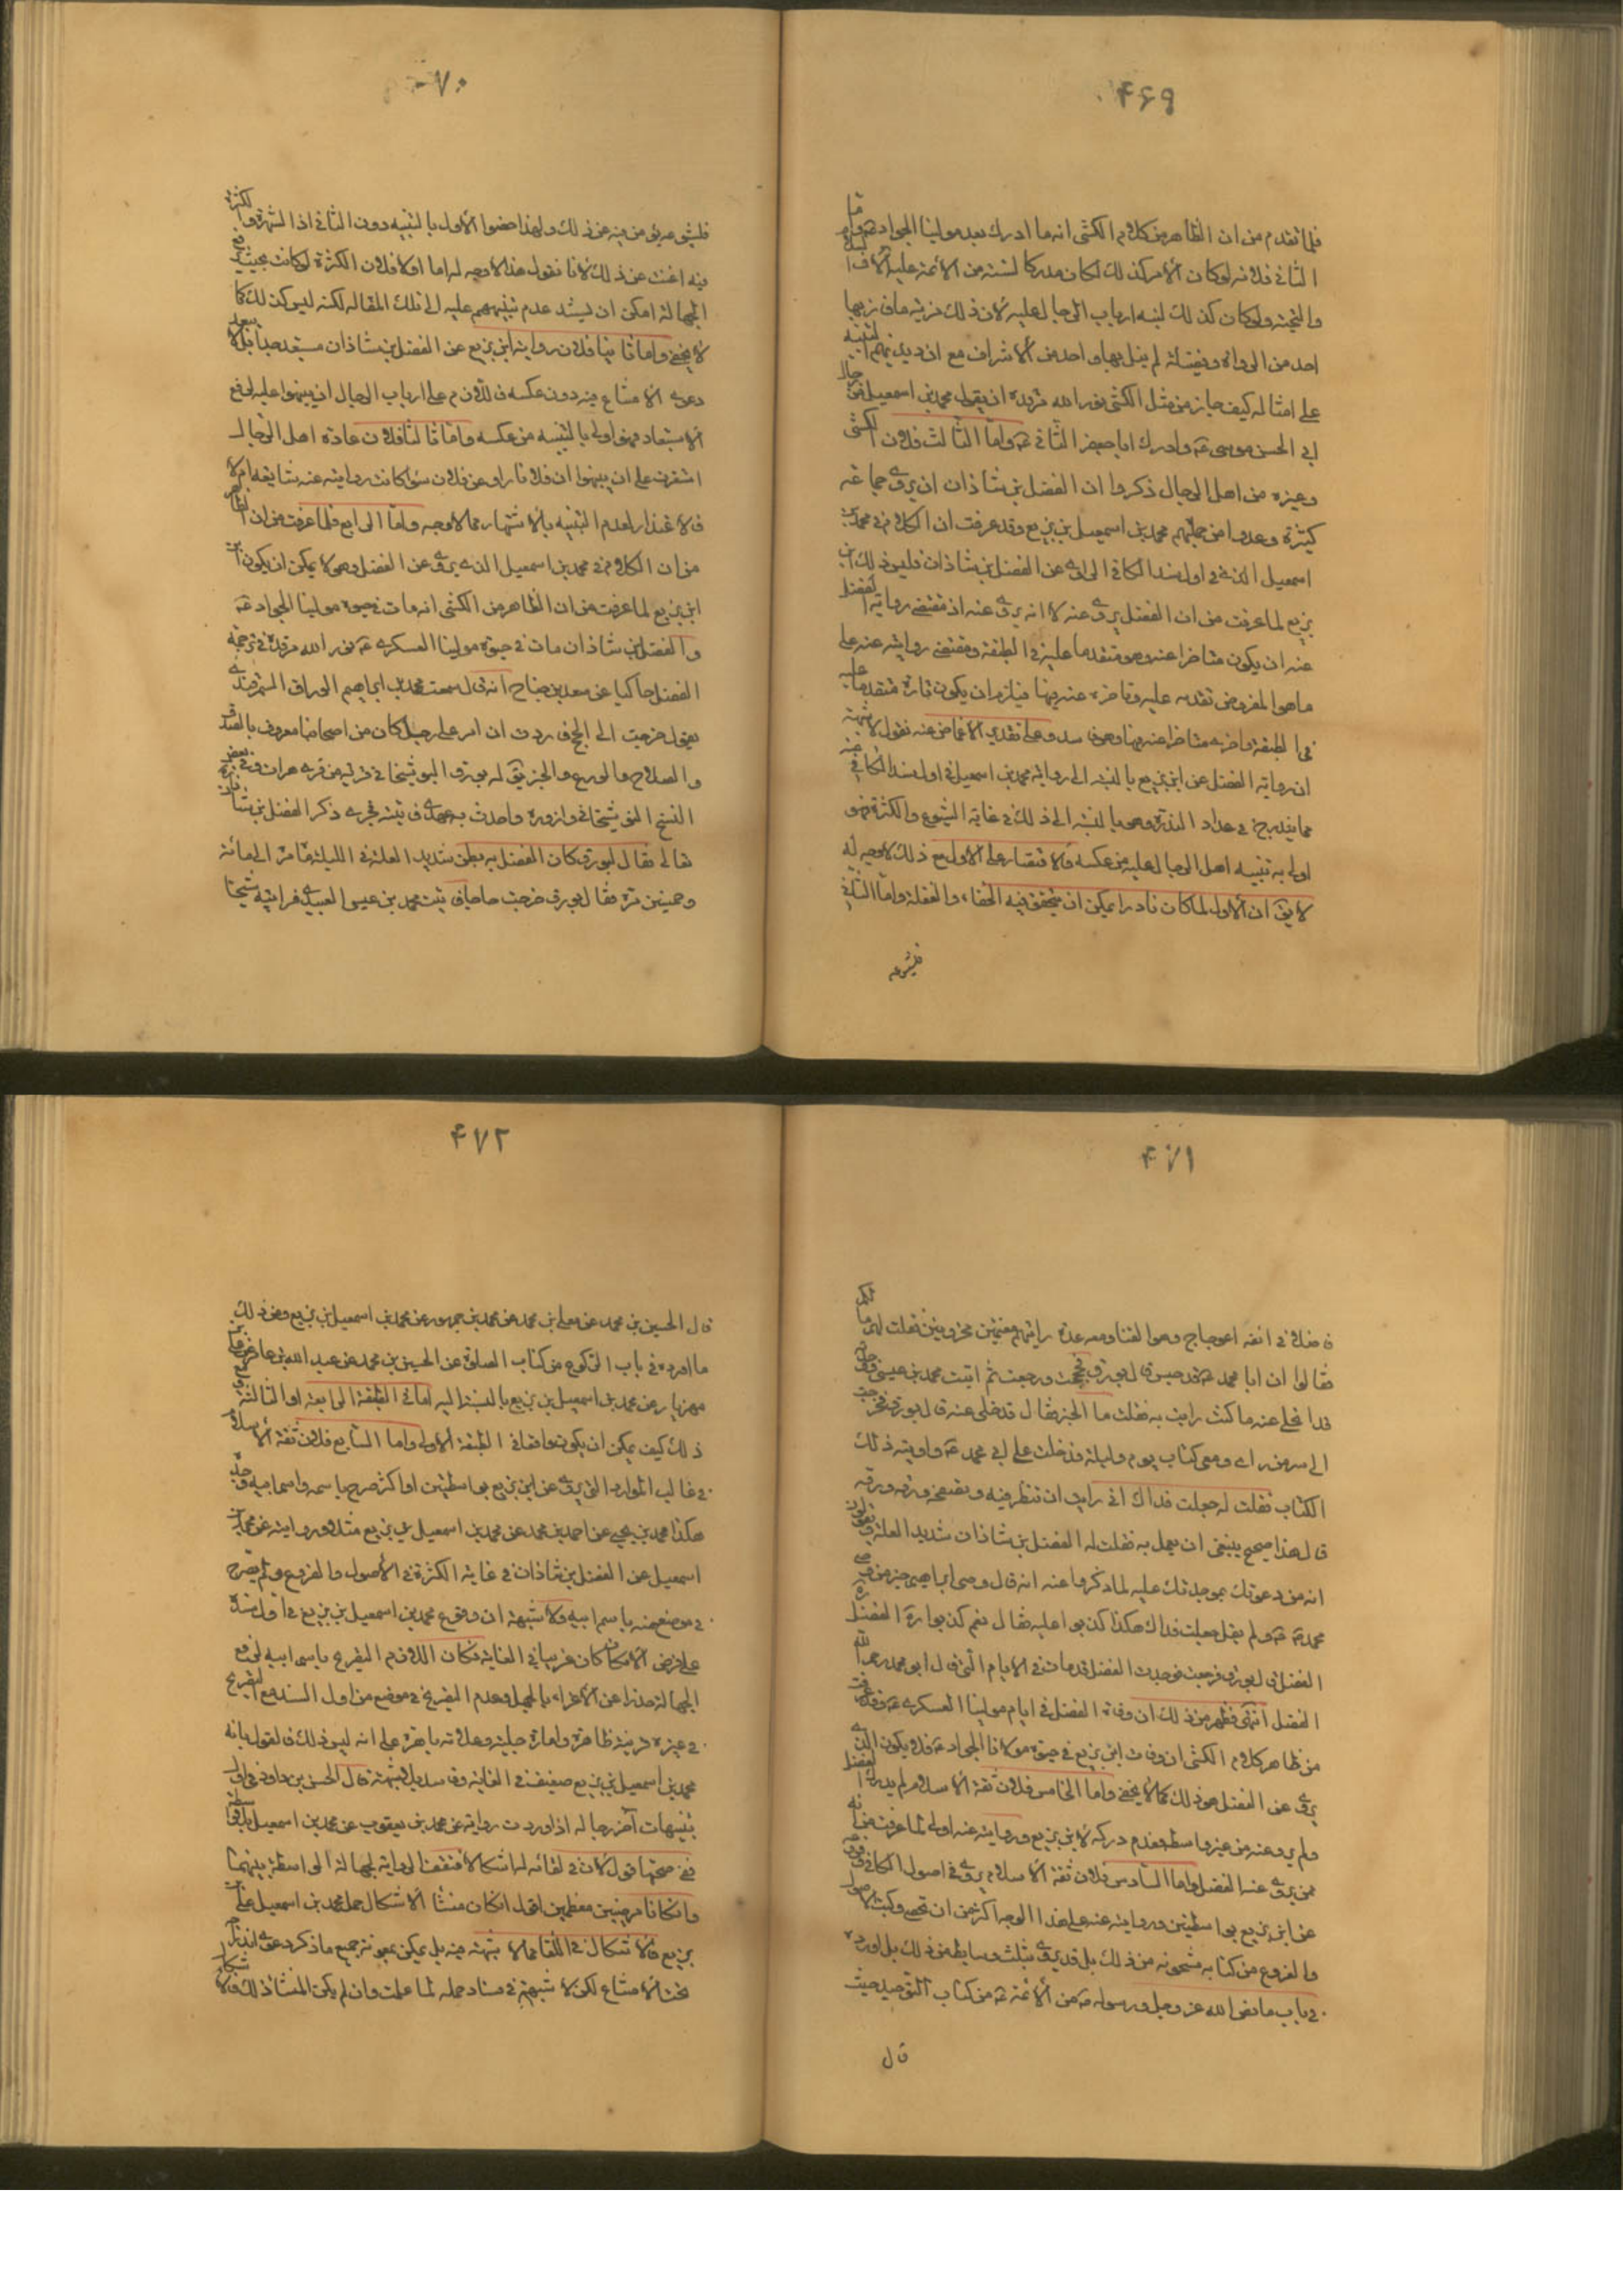 ۴۶۹
فلما تقدم من ان الظاهر من كلام الكشى انه ما ادرك بعد مولينا الجواد ع واما
الثانى فلانه لو كان الأمر كذلك لكان مدركا لستة من الأئمة عليهم آلاف
والتحية ولو كان كذلك لنبه ارباب الرجال عليه لان ذلك مزية ما فاز بها
احد من الرواة وفضيلة لم ينل بها واحد من الأشراف مع ان ديدنهم التنبيه
على امثاله كيف جاز من مثل الكشى نور الله مرقده ان يقول محمد بن اسمعيل من رجال
ابى الحسن موسى ع وادرك ابا جعفر الثانى ع واما الثالث فلان الكشى
وغيره من اهل الرجال ذكروا ان الفضل بن شاذان ان يروى جماعة
كثيرة وعدوا من جملتهم محمد بن اسمعيل بن بزيع وقد عرفت ان الكلام فى محمد بن
اسمعيل الذى فى اول سند الكافى الراوى عن الفضل بن شاذان فليس ذلك ابن
بزيع لما عرفت من ان الفضل يروى عنه لا انه يروى عنه اذ مقتضى رواية الفضل
عنه ان يكون متاخرا عنه وهو متقدما عليه فى الطبقة ومقتضى روايته عنه على
ما هو المفروض تقدمه عليه وتاخره عنه فيها فيلزم ان يكون تارة متقدما عليه
فى الطبقة واخرى متاخرا عنه فيها وهو فاسد وعلى تقدير الاغماض عنه نقول لا شبهة
ان رواية الفضل عن ابن بزيع بالنسبة الى رواية محمد بن اسمعيل فى اول سند الكافى عنه
مما يندرج فى عداد الندرة وهو بالنسبة الى ذلك فى غاية الشيوع والكثرة فهو
اولى به تنبيه اهل الرجال عليه من عكسه فالاقتصار على الأول مع ذلك لا وجه له
لا يق ان الأول لما كان نادرا يمكن ان يتحقق فيه الخفاء والغفلة واما الثانى
فلشيوعه
۴۷۰
فلشيوعه من فيه عن ذلك ولهذا خصوا الأول بالتنبيه دون الثانى اذ الشهرة والكثرة
فيه اغنت عن ذلك لأنا نقول هذا لا وجه له اما اولا فلان الكثرة لو كانت بحيث ترفع
الجهالة امكن ان يستند عدم تنبيههم عليه الى تلك المقالة لكنه ليس كذلك كما
لا يخفى واما ثانيا فلان رواية ابن بزيع عن الفضل بن شاذان مستبعد جدا بل لا يبعد
دعوى الامتناع فيه دون عكسه فاللازم على ارباب الرجال ان ينبهوا عليه لرفع
الاستبعاد فهو اولى بالتنبيه من عكسه واما ثالثا فلان عادة اهل الرجال
استقرت على ان ينبهوا ان فلانا راو عن فلان سواء كانت روايته عنه شايعة ام لا
فالاعتذار لعدم التنبيه بالاشتهار مما لا وجه واما الرابع فلما عرفت من ان الظاهر
من ان الكلام فى محمد بن اسمعيل الذى يروى عن الفضل وهو لا يمكن ان يكون ابن
ابن بزيع لما عرفت من ان الظاهر من الكشى انه مات فى حيوة مولينا الجواد ع
والفضل بن شاذان مات فى حيوة مولينا العسكرى ع نور الله مرقده فى ترجمة
الفضل حاكيا عن سعد بن جناح انه قال سمعت محمد بن ابراهيم الوراق السمرقندى
يقول خرجت الى الحج فاردت ان امر على رجل كان من اصحابنا معروف بالصدق
والصلاح والورع والخير يق له بورق البوشنجانى قرية من قرى هراة وفى بعض
النسخ البوشنجانى وازوره واحدث به عهدى فاتيته فجرى ذكر الفضل بن شاذان
تعالى فقال بورق كان الفضل به بطن شديد العلة فى الليلة مامر الى مائة
وخمسين مرة فقال بورق خرجت حاجا فاتيت محمد بن عيسى العبيدى فرايته شيخا
۴۷۱
فاضلا فى انفه اعوجاج وهو القنا ومعه عدة رايتهم مغتمين محزونين فقلت لهم مالكم
فقالوا ان ابا محمد ع قد حبس قال بورق فحججت ورجعت ثم اتيت محمد بن عيسى فوجدته
قد انجلى عنه ما كنت رايت به فقلت ما الخبر فقال قد خلى عنه قال بورق فخرجت
الى سر من راى ومعى كتاب يوم وليلة فدخلت على ابى محمد ع واريته ذلك
الكتاب فقلت له جعلت فداك ان رايت ان تنظر فيه وتصفحه ورقة ورقة
قال هذا صحيح ينبغى ان يعمل به فقلت له الفضل بن شاذان شديد العلة ويقولون
انه من دعوتك بموجدتك عليه لما ذكروا عنه انه قال وصى ابراهيم خير من وصى
محمد ص ع ولم يقل جعلت فداك هكذا كذبوا عليه فقال نعم كذبوا رحم الفضل
الفضل قال بورق فرجعت فوجدت الفضل قد مات فى الأيام التى قال ابو محمد رحم الله
الفضل انتهى فظهر من ذلك ان وفاة الفضل فى ايام مولينا العسكرى ع وقد عرفت
من ظاهر كلام الكشى ان وفاة ابن بزيع فى حيوة مولانا الجواد ع فلا يكون الذى
يروى عن الفضل هو ذلك كما لا يخفى واما الخامس فلان ثقة الاسلام لم يدرك الفضل
ولم يرو عنه من غير واسطة فعدم دركه لابن بزيع وروايته عنه اولى لما عرفت من انه
ممن يروى عنه الفضل واما السادس فلان ثقة الاسلام يروى فى اصول الكافى وفروعه
عن ابن بزيع بواسطتين وروايته عنه على هذا الوجه اكثر من ان تحصى وكتب الاصول
والفروع من كتابه مشحونة من ذلك بل قد يروى بثلث وسايط من ذلك بل اورده
فى باب ما نص الله عز وجل ورسوله ص من الأئمة ع من كتاب التوحيد حيث
قال
۴۷۲
قال الحسين بن محمد عن معلى بن محمد عن محمد بن جمهور عن محمد بن اسمعيل بن بزيع ومن ذلك
ما اورده فى باب الركوع من كتاب الصلوة عن الحسين بن محمد عن عبد الله بن عامر عن على بن
مهزيار عن محمد بن اسمعيل بن بزيع بالنسبة اليه اما فى الطبقة الرابعة او الثالثة
ذلك كيف يمكن ان يكون واقعا فى الطبقة الأولى واما السابع فلان ثقة الاسلام
فى غالب الموارد التى يروى عن ابن بزيع بواسطتين او اكثر صرح باسمه واسم ابيه وجده
هكذا محمد بن يحيى عن احمد بن محمد عن محمد بن اسمعيل بن بزيع مثلا وروايته عن محمد بن
اسمعيل عن الفضل بن شاذان فى غاية الكثرة فى الأصول والفروع ولم يصرح
فى موضع منه باسم ابيه ولا شبهة ان وقوع محمد بن اسمعيل بن بزيع فى اول سنده
على فرض الامكان كان غريبا فى الغاية فكان اللازم التصريح باسم ابيه لرفع
الجهالة حذرا عن الاغراء بالجهل وعدم التصريح فى موضع من اول السند مع التصريح
فى غيره قرينة ظاهرة وامارة جلية وعلامة باهرة على انه ليس ذلك فالقول بانه
محمد بن اسمعيل بن بزيع ضعيف فى الغاية وفاسد بلا شبهة قال الحسن بن داود فى اول
تنبيهات آخر رجاله اذا وردت رواية عن محمد بن يعقوب عن محمد بن اسمعيل بلا واسطة
ففى صحتها قول لان فى لقائه له اشكالا فتقف الرواية لجهالة الراسطة بينهما
وان كانا مرضيين معظمين اقول ان كان منشأ الاشكال حمل محمد بن اسمعيل على ابن
بزيع فالاشكال فى اللقاء مما لا شبهة فيه بل يمكن بمعونة جميع ما ذكر دعوى اندراجه
تحت الامتناع لكن لا شبهة فى فساد حمله لما علمت وان لم يكن المنشأ ذلك فلا اشكال